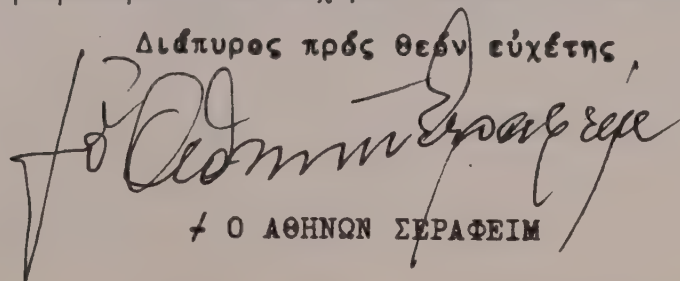 Διάπυρος πρός Θεόν εὐχέτης
† ὁ Ἀθηνῶν Σεραφείμ
† Ο ΑΘΗΝΩΝ ΣΕΡΑΦΕΙΜ